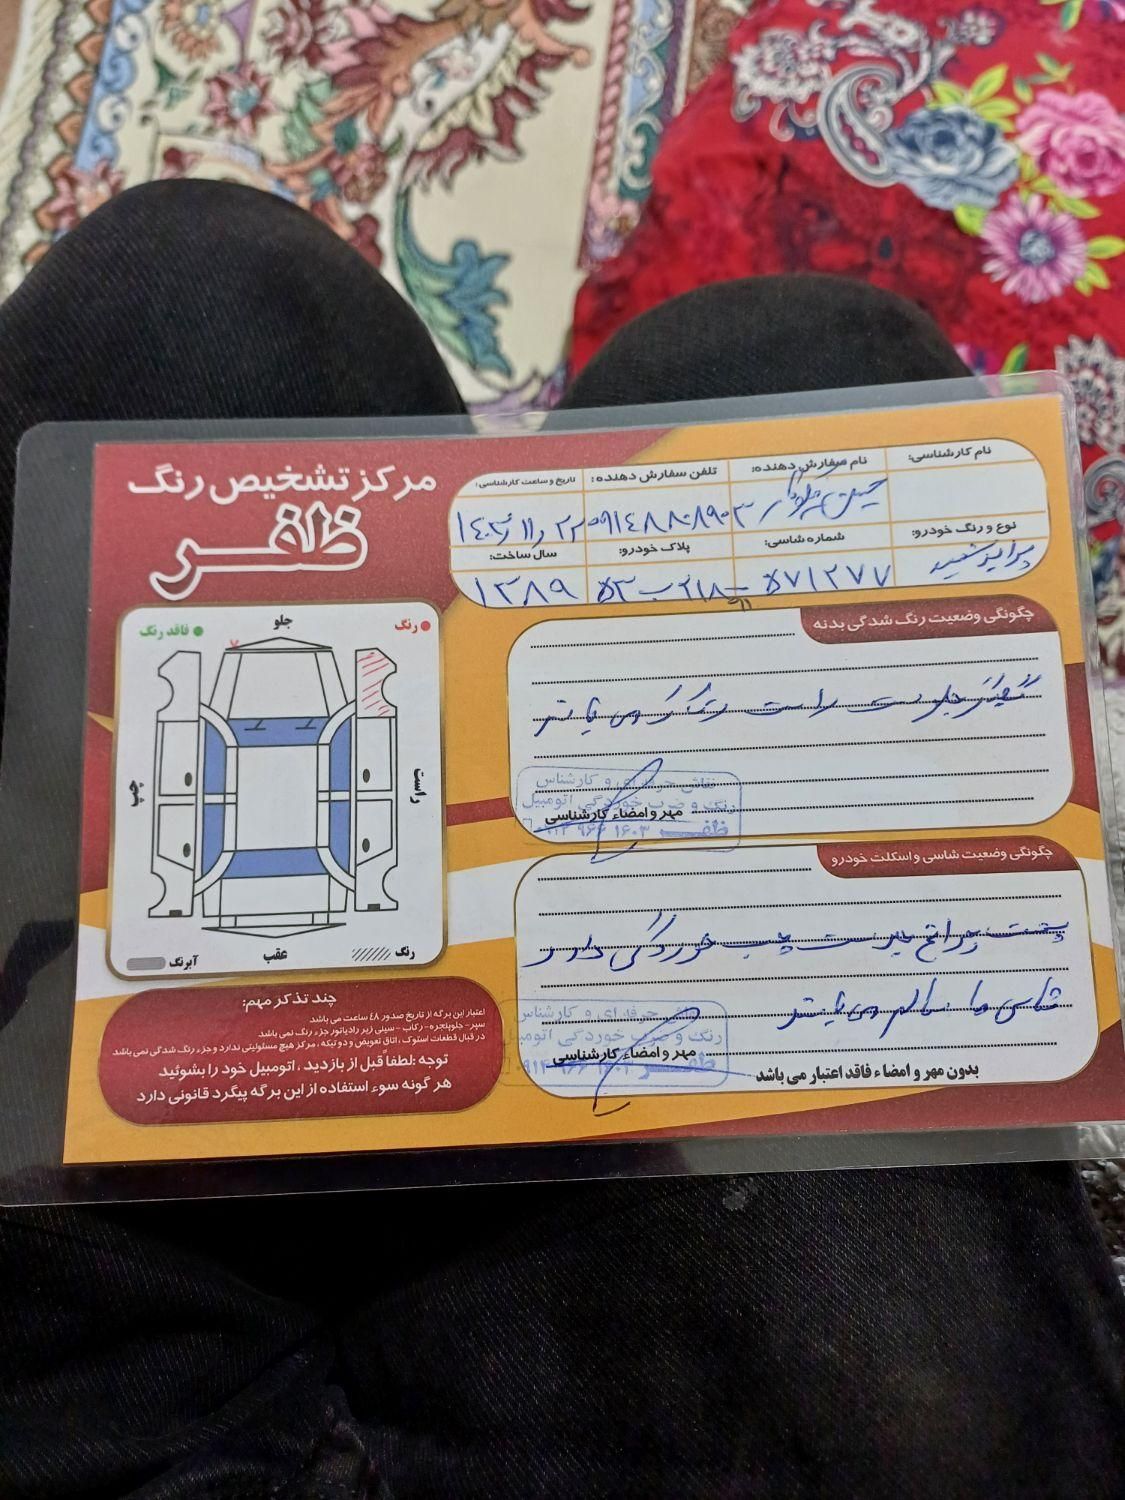 مرکز تشخیص رنگ
ظفر
نام کارشناسی:
نام سفارش دهنده:
تلفن سفارش دهنده:
تاریخ و ساعت کارشناسی:
حسین
۰۹۱۴۸۸۰۸۹۰۳
۱۴۰۳/۱۱/۲۲
نوع و رنگ خودرو:
شماره شاسی:
پلاک خودرو:
سال ساخت:
پراید سفید
۵۷۱۲۷۷
۱۳۸۹
رنگ
جلو
فاقد رنگ
راست
چپ
رنگ
عقب
آبرنگ
چگونگی وضعیت رنگ شدگی بدنه
گلگیر جلو سمت راست رنگ می باشد
نقاش حرفه ای و کارشناس
رنگ و ضرب خوردگی اتومبیل
ظفر ۰۹۱۴ ۹۶۶ ۱۶۰۳
مهر و امضاء کارشناسی
چگونگی وضعیت شاسی و اسکلت خودرو
پشت چراغ سمت چپ خوردگی دارد
شاسی ها سالم می باشد
نقاش حرفه ای و کارشناس
رنگ و ضرب خوردگی اتومبیل
مهر و امضاء کارشناسی
بدون مهر و امضاء فاقد اعتبار می باشد
چند تذکر مهم:
اعتبار این برگه از تاریخ صدور ۴۸ ساعت می باشد
سپر - جلوپنجره - رکاب - سینی زیر رادیاتور جزء رنگ نمی باشد
در قبال قطعات استوک، اتاق تعویض و دوتیکه، مرکز هیچ مسئولیتی ندارد و جزء رنگ شدگی نمی باشد
توجه : لطفاً قبل از بازدید ، اتومبیل خود را بشوئید
هر گونه سوء استفاده از این برگه پیگرد قانونی دارد